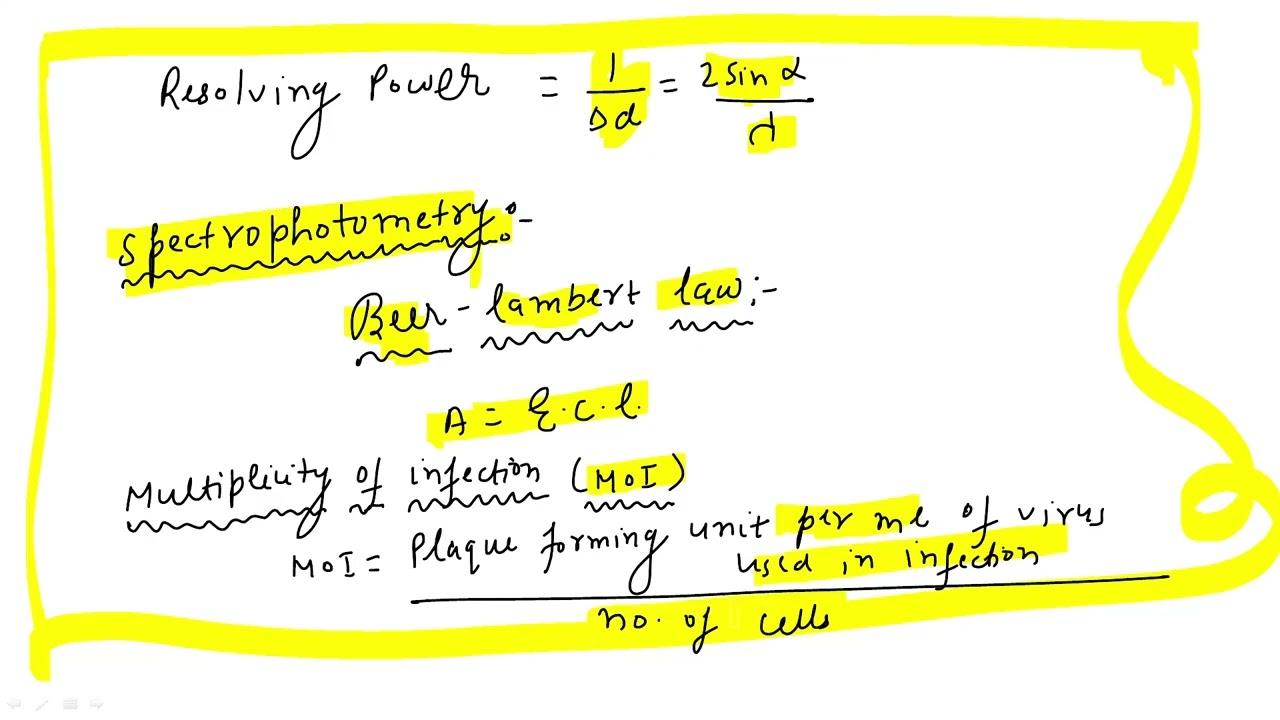 Resolving Power = 1/Δd = 2 sin α/d
Spectrophotometry:-
Beer-lambert law:-
A = ε.c.l.
Multiplicity of infection (MOI)
MOI = Plaque forming unit per ml of virus
used in infection
no. of cells